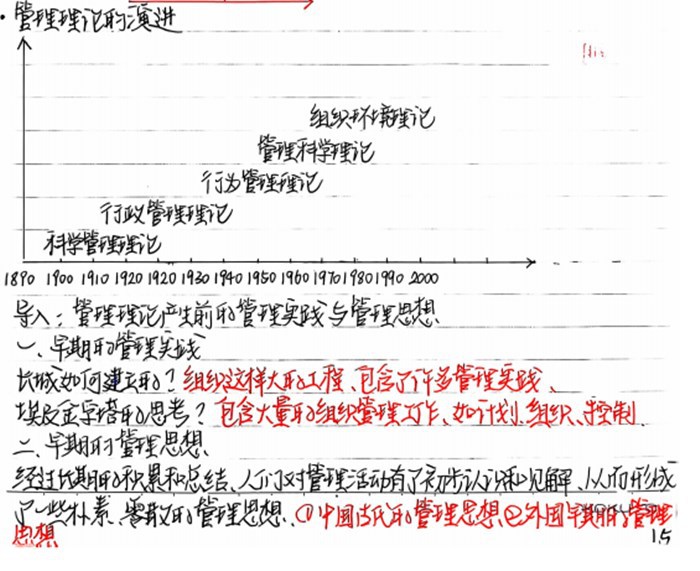 ·管理理论的演进
组织环境理论
管理科学理论
行为管理理论
行政管理理论
科学管理理论
1890 1900 1910 1920 1920 1930 1940 1950 1960 1970 1980 1990 2000
导入:管理理论产生前的管理实践与管理思想
一、早期的管理实践
长城如何建立的?组织这样大的工程、包含了许多管理实践、
埃及金字塔的思考?包含大量的组织管理工作、如计划、组织、控制
二、早期的管理思想
经过长期的积累和总结、人们对管理活动有了初步认识和见解、从而形成
了一些朴素、零散的管理思想、①中国古代的管理思想②外国早期的管理
思想
15